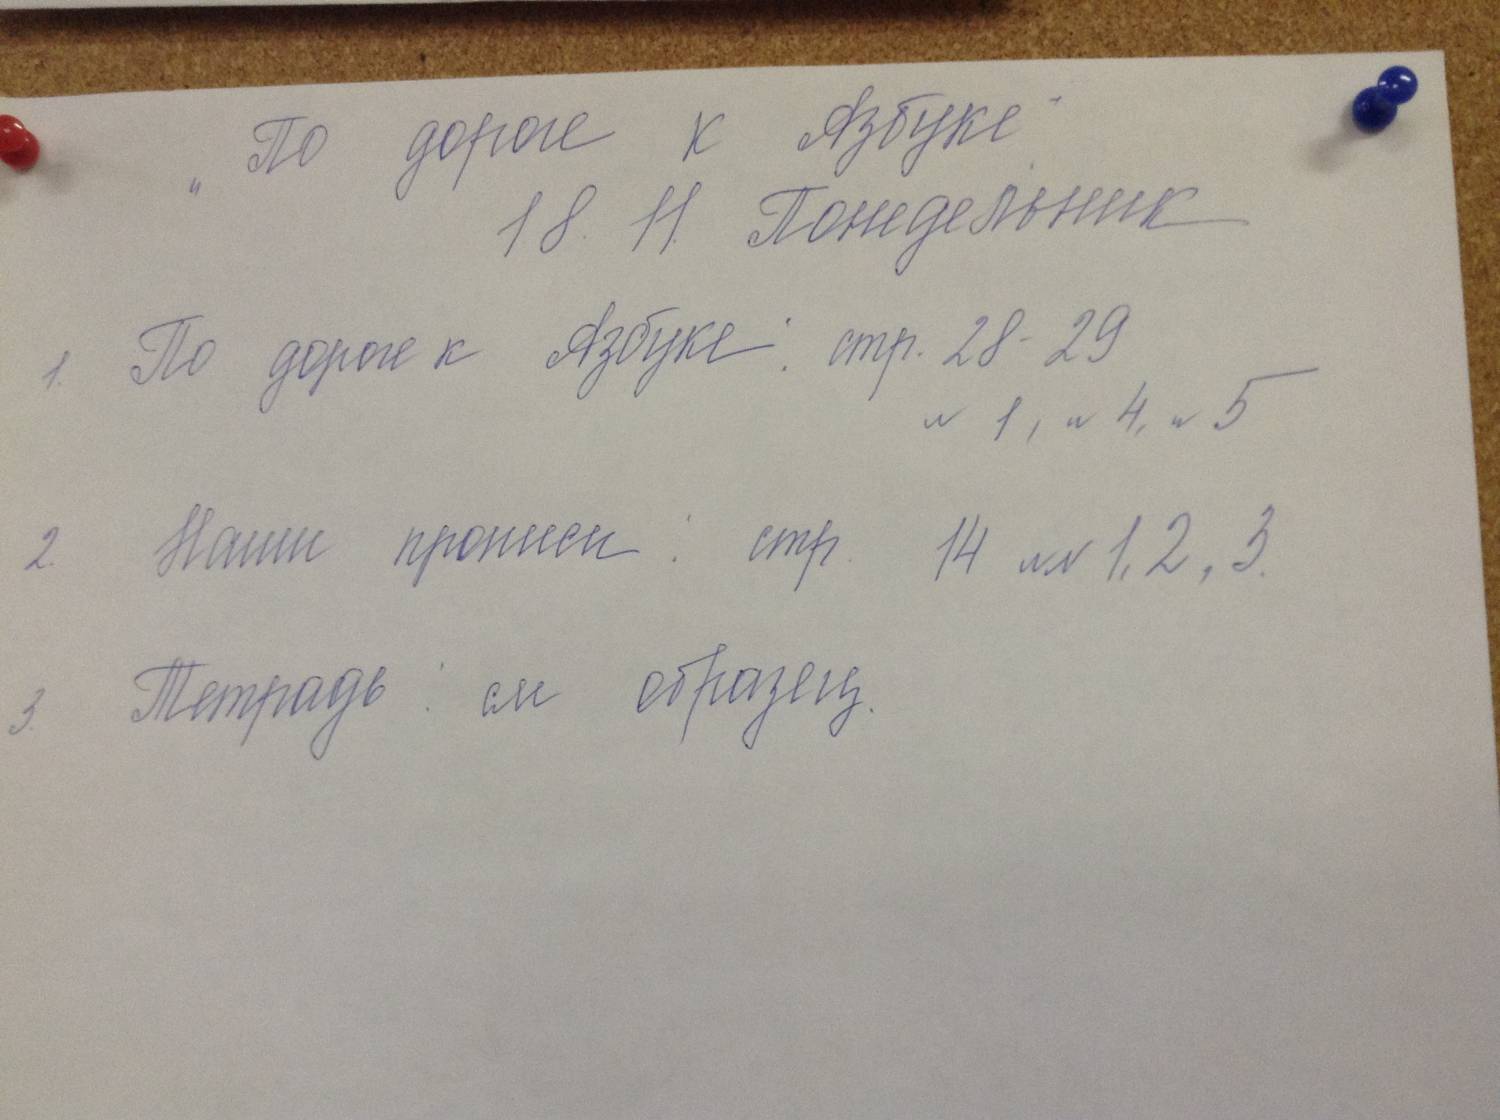 „По дороге к Азбуке“
18. 11. Понедельник
1. По дороге к Азбуке: стр. 28-29
№ 1, № 4, № 5
2. Наши прописи: стр. 14 №№ 1, 2, 3.
3. Тетрадь: см образец.